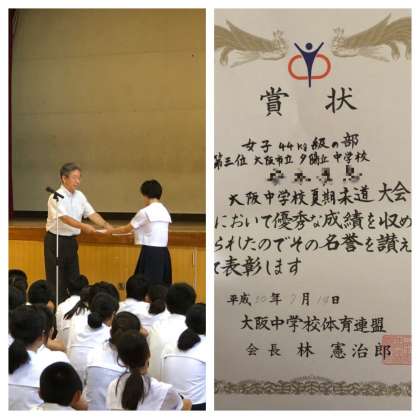 賞状
女子44kg級の部
第三位 大阪市立夕陽丘中学校
大阪中学校夏期柔道大会
において優秀な成績を収め
られたのでその名誉を讃え
て表彰します
平成30年7月14日
大阪中学校体育連盟
会長 林 憲治郎